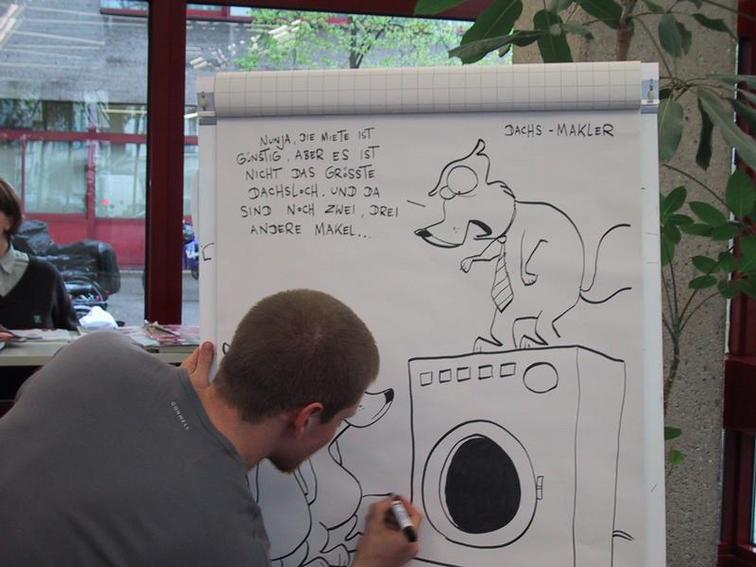 NUNJA, DIE MIETE IST
GÜNSTIG, ABER ES IST
NICHT DAS GRÖSSTE
DACHSLOCH, UND DA
SIND NOCH ZWEI, DREI
ANDERE MAKEL...
DACHS-MAKLER
GONWELT